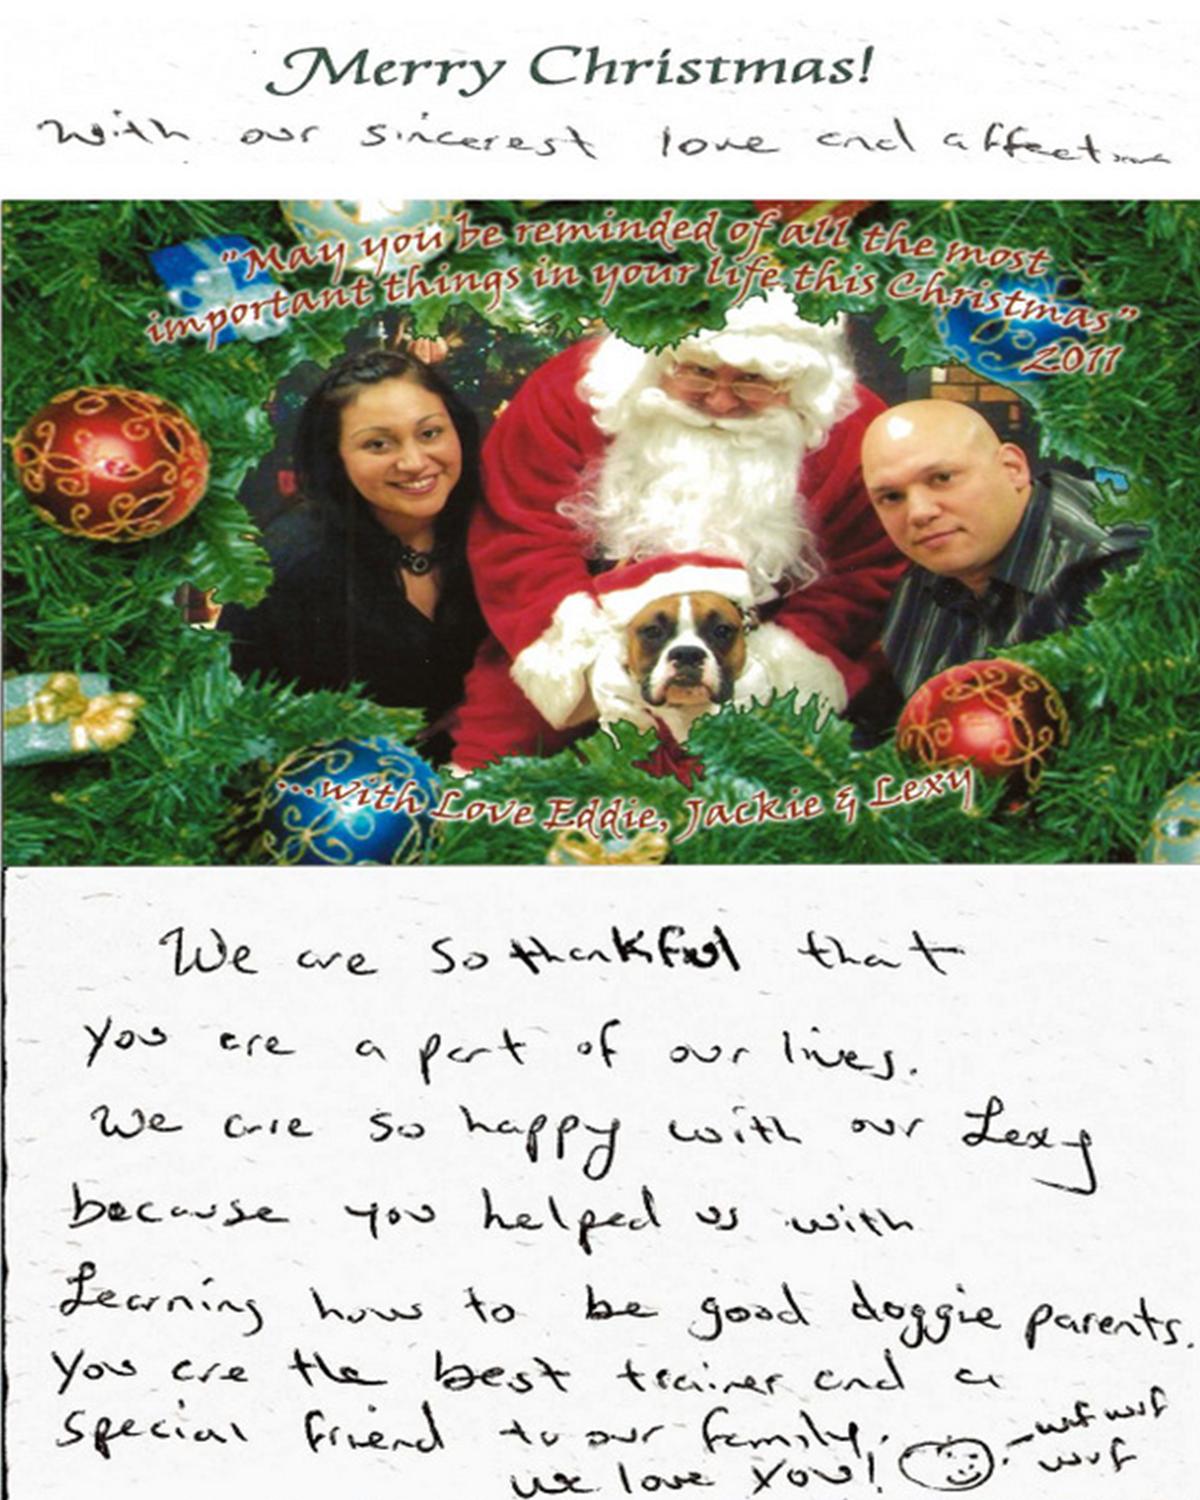 Merry Christmas!
With our sincerest love and affection
"May you be reminded of all the most
important things in your life this Christmas"
2011
...with Love Eddie, Jackie & Lexy
We are so thankful that
you are a part of our lives.
We are so happy with our Lexy
because you helped us with
Learning how to be good doggie parents.
You are the best trainer and a
special friend to our family.
we love you!
- wuf wuf
wuf